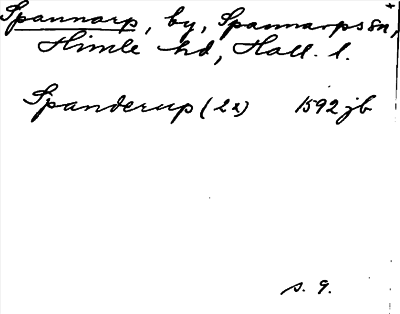 Spannarp, by, Spannarps sn,
Himle hd, Hall. l.
Spanderup (2x) 1592 jb
s. 9.